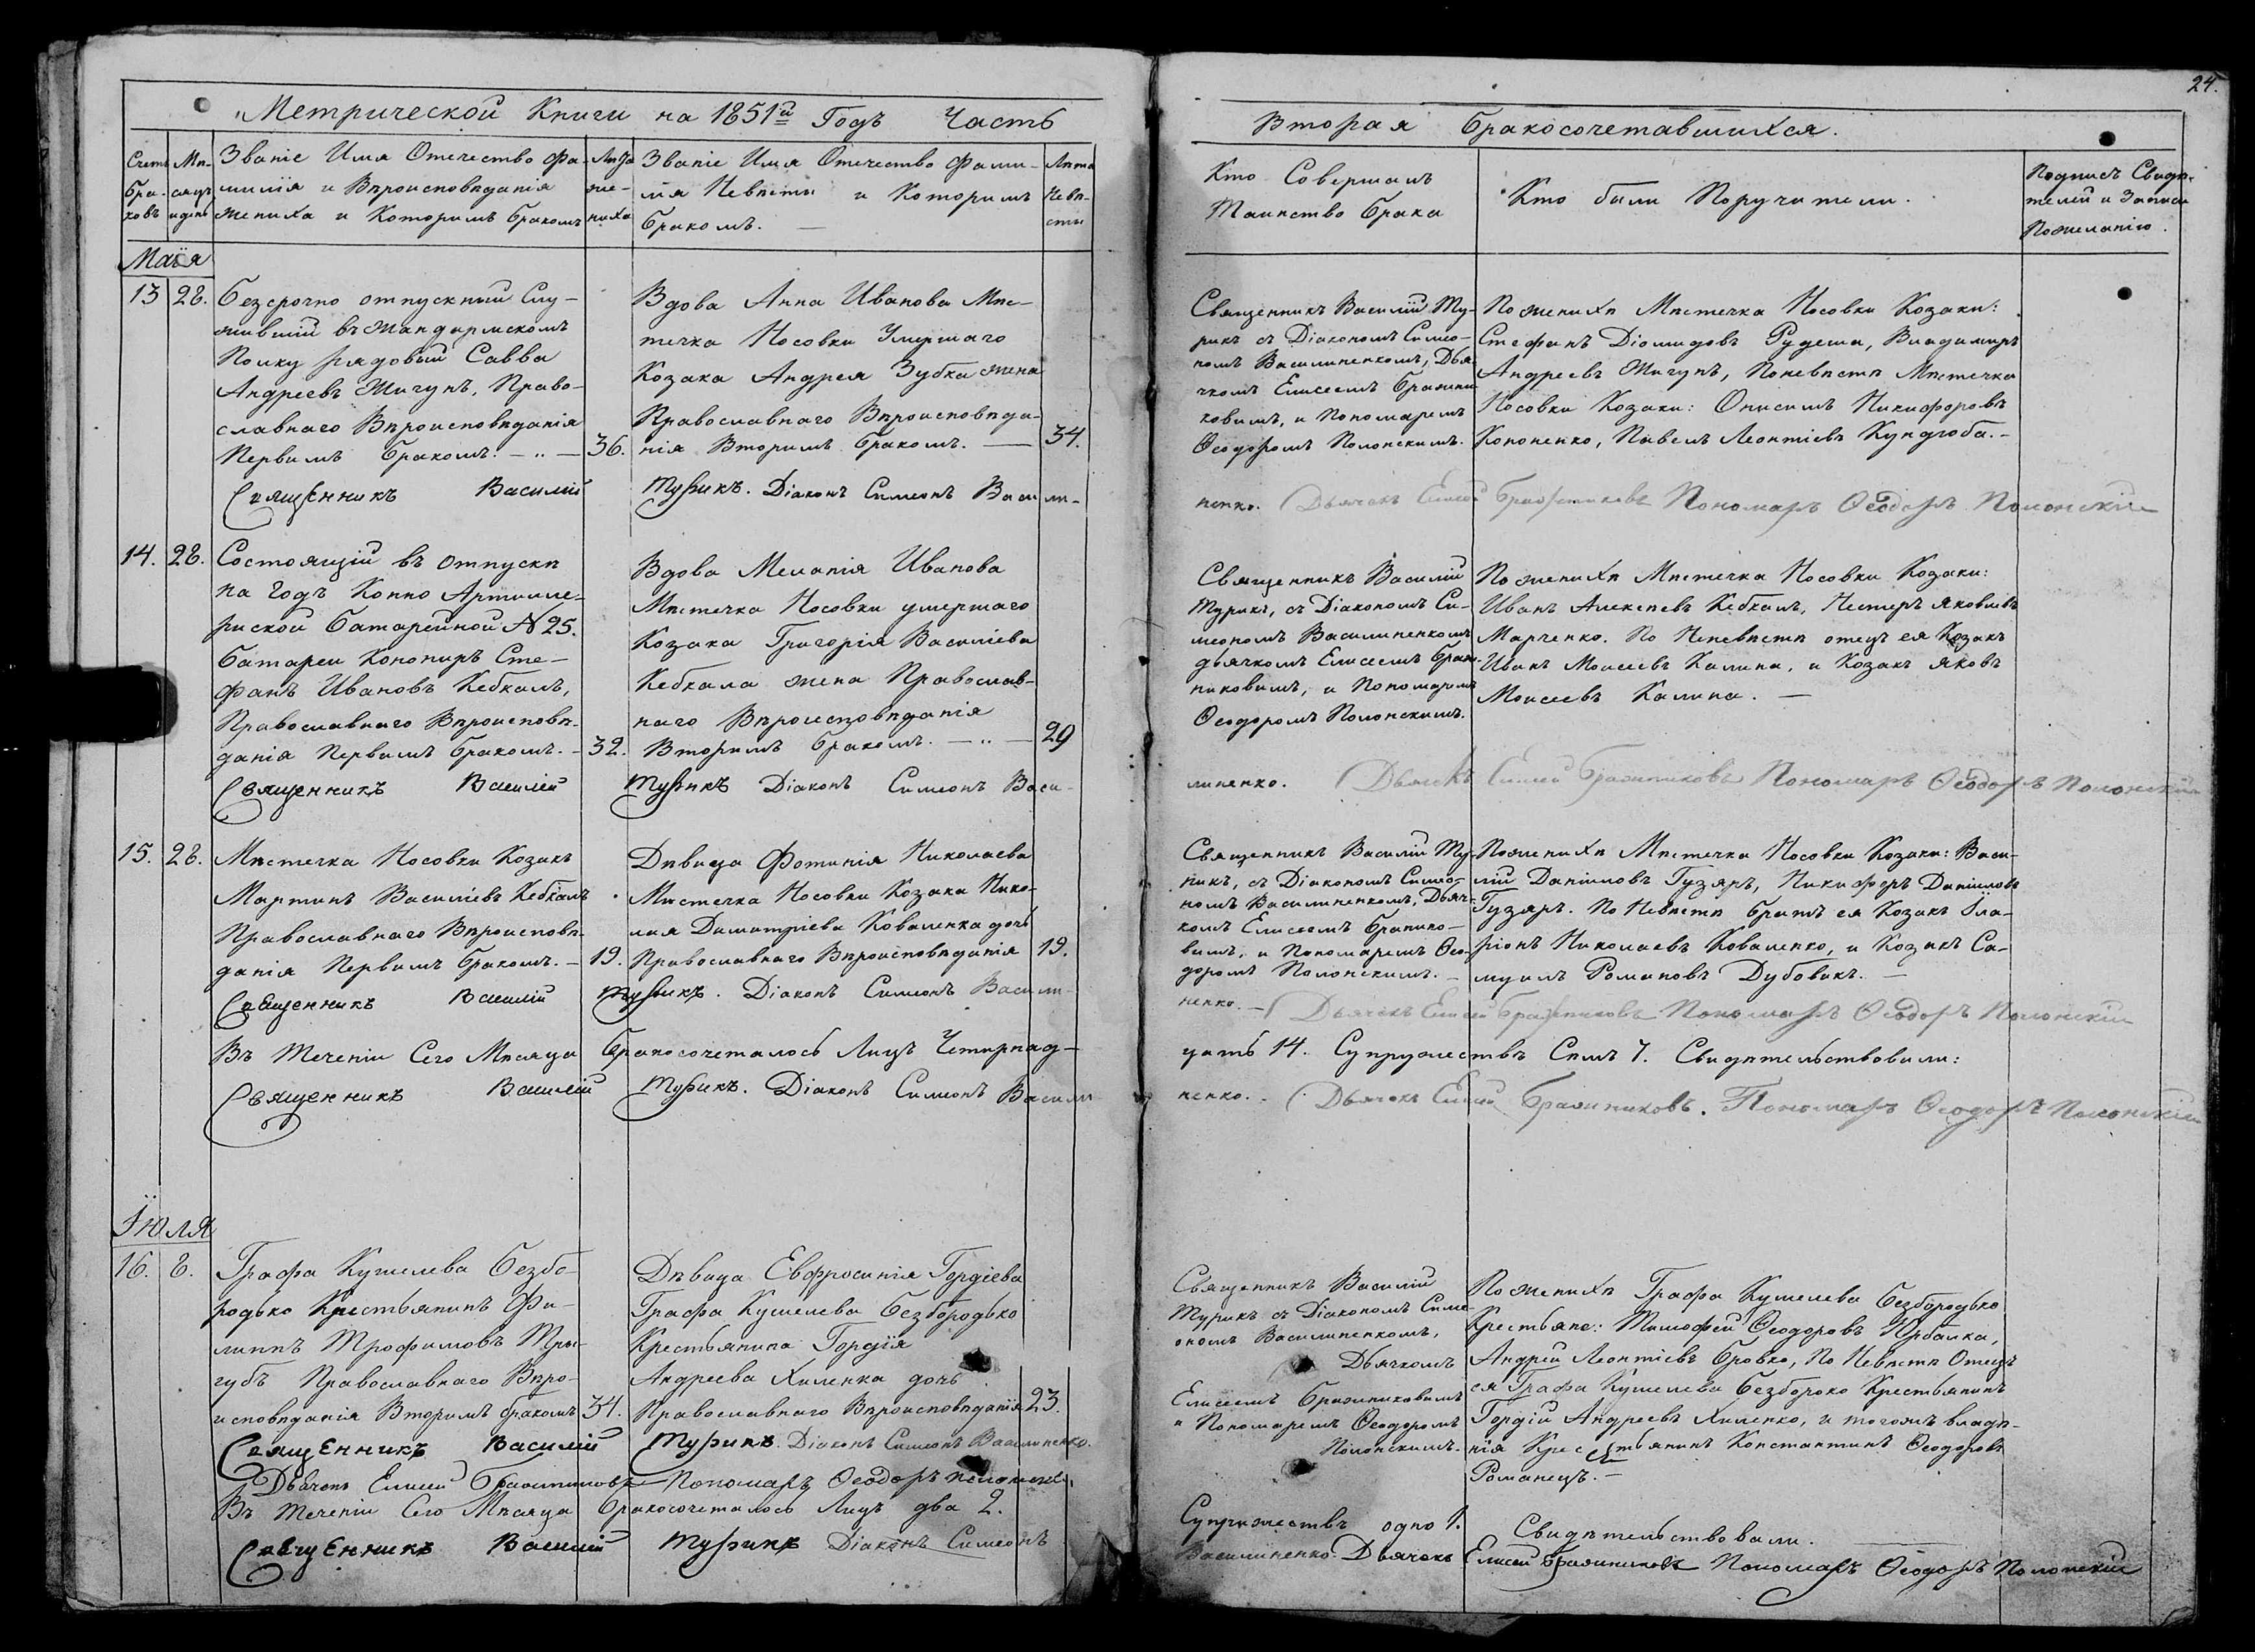 24.
Метрической Книги на 1851й Годъ Часть
Вторая бракосочетавшихся.
Счетъ браковъ
Мѣсяцъ и день
Званіе Имя Отечество Фа-
милія и Вѣроисповѣданія
жениха и Которимъ бракомъ
Лѣта жениха
Званіе Имя Отечество Фами-
лія Невѣсты и Которимъ
бракомъ. —
Лѣта Невѣ-
сты
Кто Совершалъ
Таинство брака
Кто били Поручители.
Подписъ Свидѣ-
телей и Записи
По желанію.
Маія
13 28.
Безсрочно отпускний Слу-
жившій въ Жандармскомъ
Полку рядовый Савва
Андреевъ Жигунъ, Право-
славнаго Вѣроисповѣданія
Первимъ бракомъ. — 36.
Вдова Анна Иванова Мѣс-
течка Носовки Умершаго
Козака Андрея Зубка жена
Православнаго Вѣроисповѣда-
нія Вторимъ бракомъ. — 34.
Священникъ Василій Ту-
рикъ съ Діакономъ Симео-
номъ Василиненкомъ, Дья-
чкомъ Елисеемъ Бражни-
ковимъ, и Пономаремъ
Ѳеодоромъ Полонскимъ.
По женихѣ Мѣстечка Носовки Козаки:
Стефанъ Діомидовъ Рудеша, Владимиръ
Андреевъ Жигунъ, По невѣстѣ Мѣстечка
Носовки Козаки: Онисимъ Никифоровъ
Кононенко, Павелъ Леонтіевъ Кундюба. —
Священникъ Василій Турикъ. Діаконъ Симеонъ Васили-
ненко. Дьячокъ Елисей Бражниковъ Пономаръ Ѳеодоръ Полонскій
14. 28.
Состоящій въ отпускѣ
на Годъ Конно Артилле-
риской батарейной № 25.
батареи Канониръ Сте-
фанъ Ивановъ Кебкалъ,
Православнаго Вѣроисповѣ-
данія Первимъ бракомъ. — 32.
Вдова Меланія Иванова
Мѣстечка Носовки умершаго
Козака Григорія Василіева
Кебкала жена Православ-
наго Вѣроисповѣданія
Вторимъ бракомъ. — 29
Священникъ Василій
Турикъ, съ Діакономъ Си-
меономъ Василиненкомъ
дьячкомъ Елисеемъ Браж-
никовимъ, и Пономаремъ
Ѳеодоромъ Полонскимъ.
По женихѣ Мѣстечка Носовки Козаки:
Иванъ Алексѣевъ Кебкалъ, Нестеръ Яковлевъ
Марченко. По Неневѣстѣ отецъ ея Козакъ
Иванъ Моисеевъ Калина, и Козакъ Яковъ
Моисеевъ Калина. —
Священникъ Василій Турикъ Діаконъ Симеонъ Васи-
линенко. Дьячокъ Елисей Бражниковъ Пономаръ Ѳеодоръ Полонскій
15. 28.
Мѣстечка Носовки Козакъ
Мартинъ Василіевъ Кебкалъ
Православнаго Вѣроисповѣ-
данія Первимъ бракомъ. — 19.
Дѣвица Фотинія Николаева
Мѣстечка Носовки Козака Нико-
лая Димитріева Коваленка дочь
Православнаго Вѣроисповѣданія 19.
Священникъ Василій Ту-
рикъ, съ Діакономъ Симео-
номъ Василиненкомъ, Дьяч-
комъ Елисеемъ Бражнико-
вимъ, и Пономаремъ Ѳео-
доромъ Полонскимъ. —
По женихѣ Мѣстечка Носовки Козаки: Васи-
лій Даніиловъ Гузяръ, Никифоръ Даніиловъ
Гузяръ. По Невѣстѣ братъ ея Козакъ Ила-
ріонъ Николаевъ Коваленко, и Козакъ Са-
муилъ Романовъ Дубовикъ. —
Священникъ Василій Турикъ. Діаконъ Симеонъ Васили-
ненко. — Дьячокъ Елисей Бражниковъ Пономаръ Ѳеодоръ Полонскій
Въ Теченіи Сего Мѣсяца бракосочеталось Лицъ Четирнад-
цать 14. Супружествъ Семъ 7. Свидѣтельствовали:
Священникъ Василій Турикъ. Діаконъ Симеонъ Васили
ненко. Дьячокъ Елисей Бражниковъ. Пономаръ Ѳеодоръ Полонскій
Іюля
16. 8.
Графа Кушелева Безбо-
родько Крестьянинъ Фи-
липпъ Трофимовъ Тры-
губъ Православнаго Вѣро-
исповѣданія Вторимъ бракомъ 34.
Дѣвица Евфросинія Гордіева
Графа Кушелева Безбородько
Крестьянина Гордія
Андреева Хиленка дочь
Православнаго Вѣроисповѣданія 23.
Священникъ Василій
Турикъ съ Діакономъ Симе-
ономъ Василиненкомъ,
Дьячкомъ
Елисеемъ Бражниковимъ
и Пономаремъ Ѳеодоромъ
Полонскимъ.
По женихѣ Графа Кушелева Безбородько
Крестьяне: Тимофей Ѳеодоровъ
Андрей Леонтіевъ Бровко, По Невѣстѣ Отецъ
ея Графа Кушелева Безбороко Крестьянинъ
Гордій Андреевъ Хиленко, и тогожъ владѣ-
нія Крестьянинъ Константинъ Ѳеодоровъ
Романецъ. —
Священникъ Василій Турикъ. Діаконъ Симеонъ Василиненко.
Дьячокъ Елисей Бражниковъ Пономаръ Ѳеодоръ Полонскій
Въ Теченіи Сего Мѣсяца бракосочеталось Лицъ два 2.
Супружествъ одно 1. Свидѣтельствовали.
Священникъ Василій Турикъ Діаконъ Симеонъ
Василиненко. Дьячокъ Елисей Бражниковъ Пономаръ Ѳеодоръ Полонскій